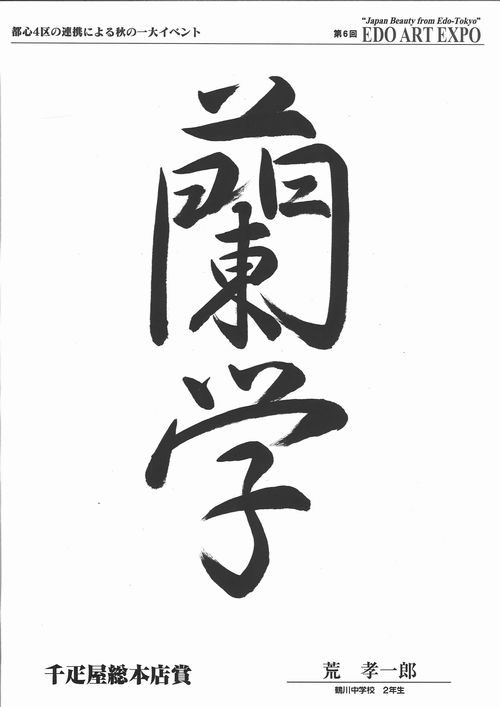 都心4区の連携による秋の一大イベント
"Japan Beauty from Edo-Tokyo"
第6回 EDO ART EXPO
蘭
学
千疋屋総本店賞
荒 孝一郎
鶴川中学校 2年生